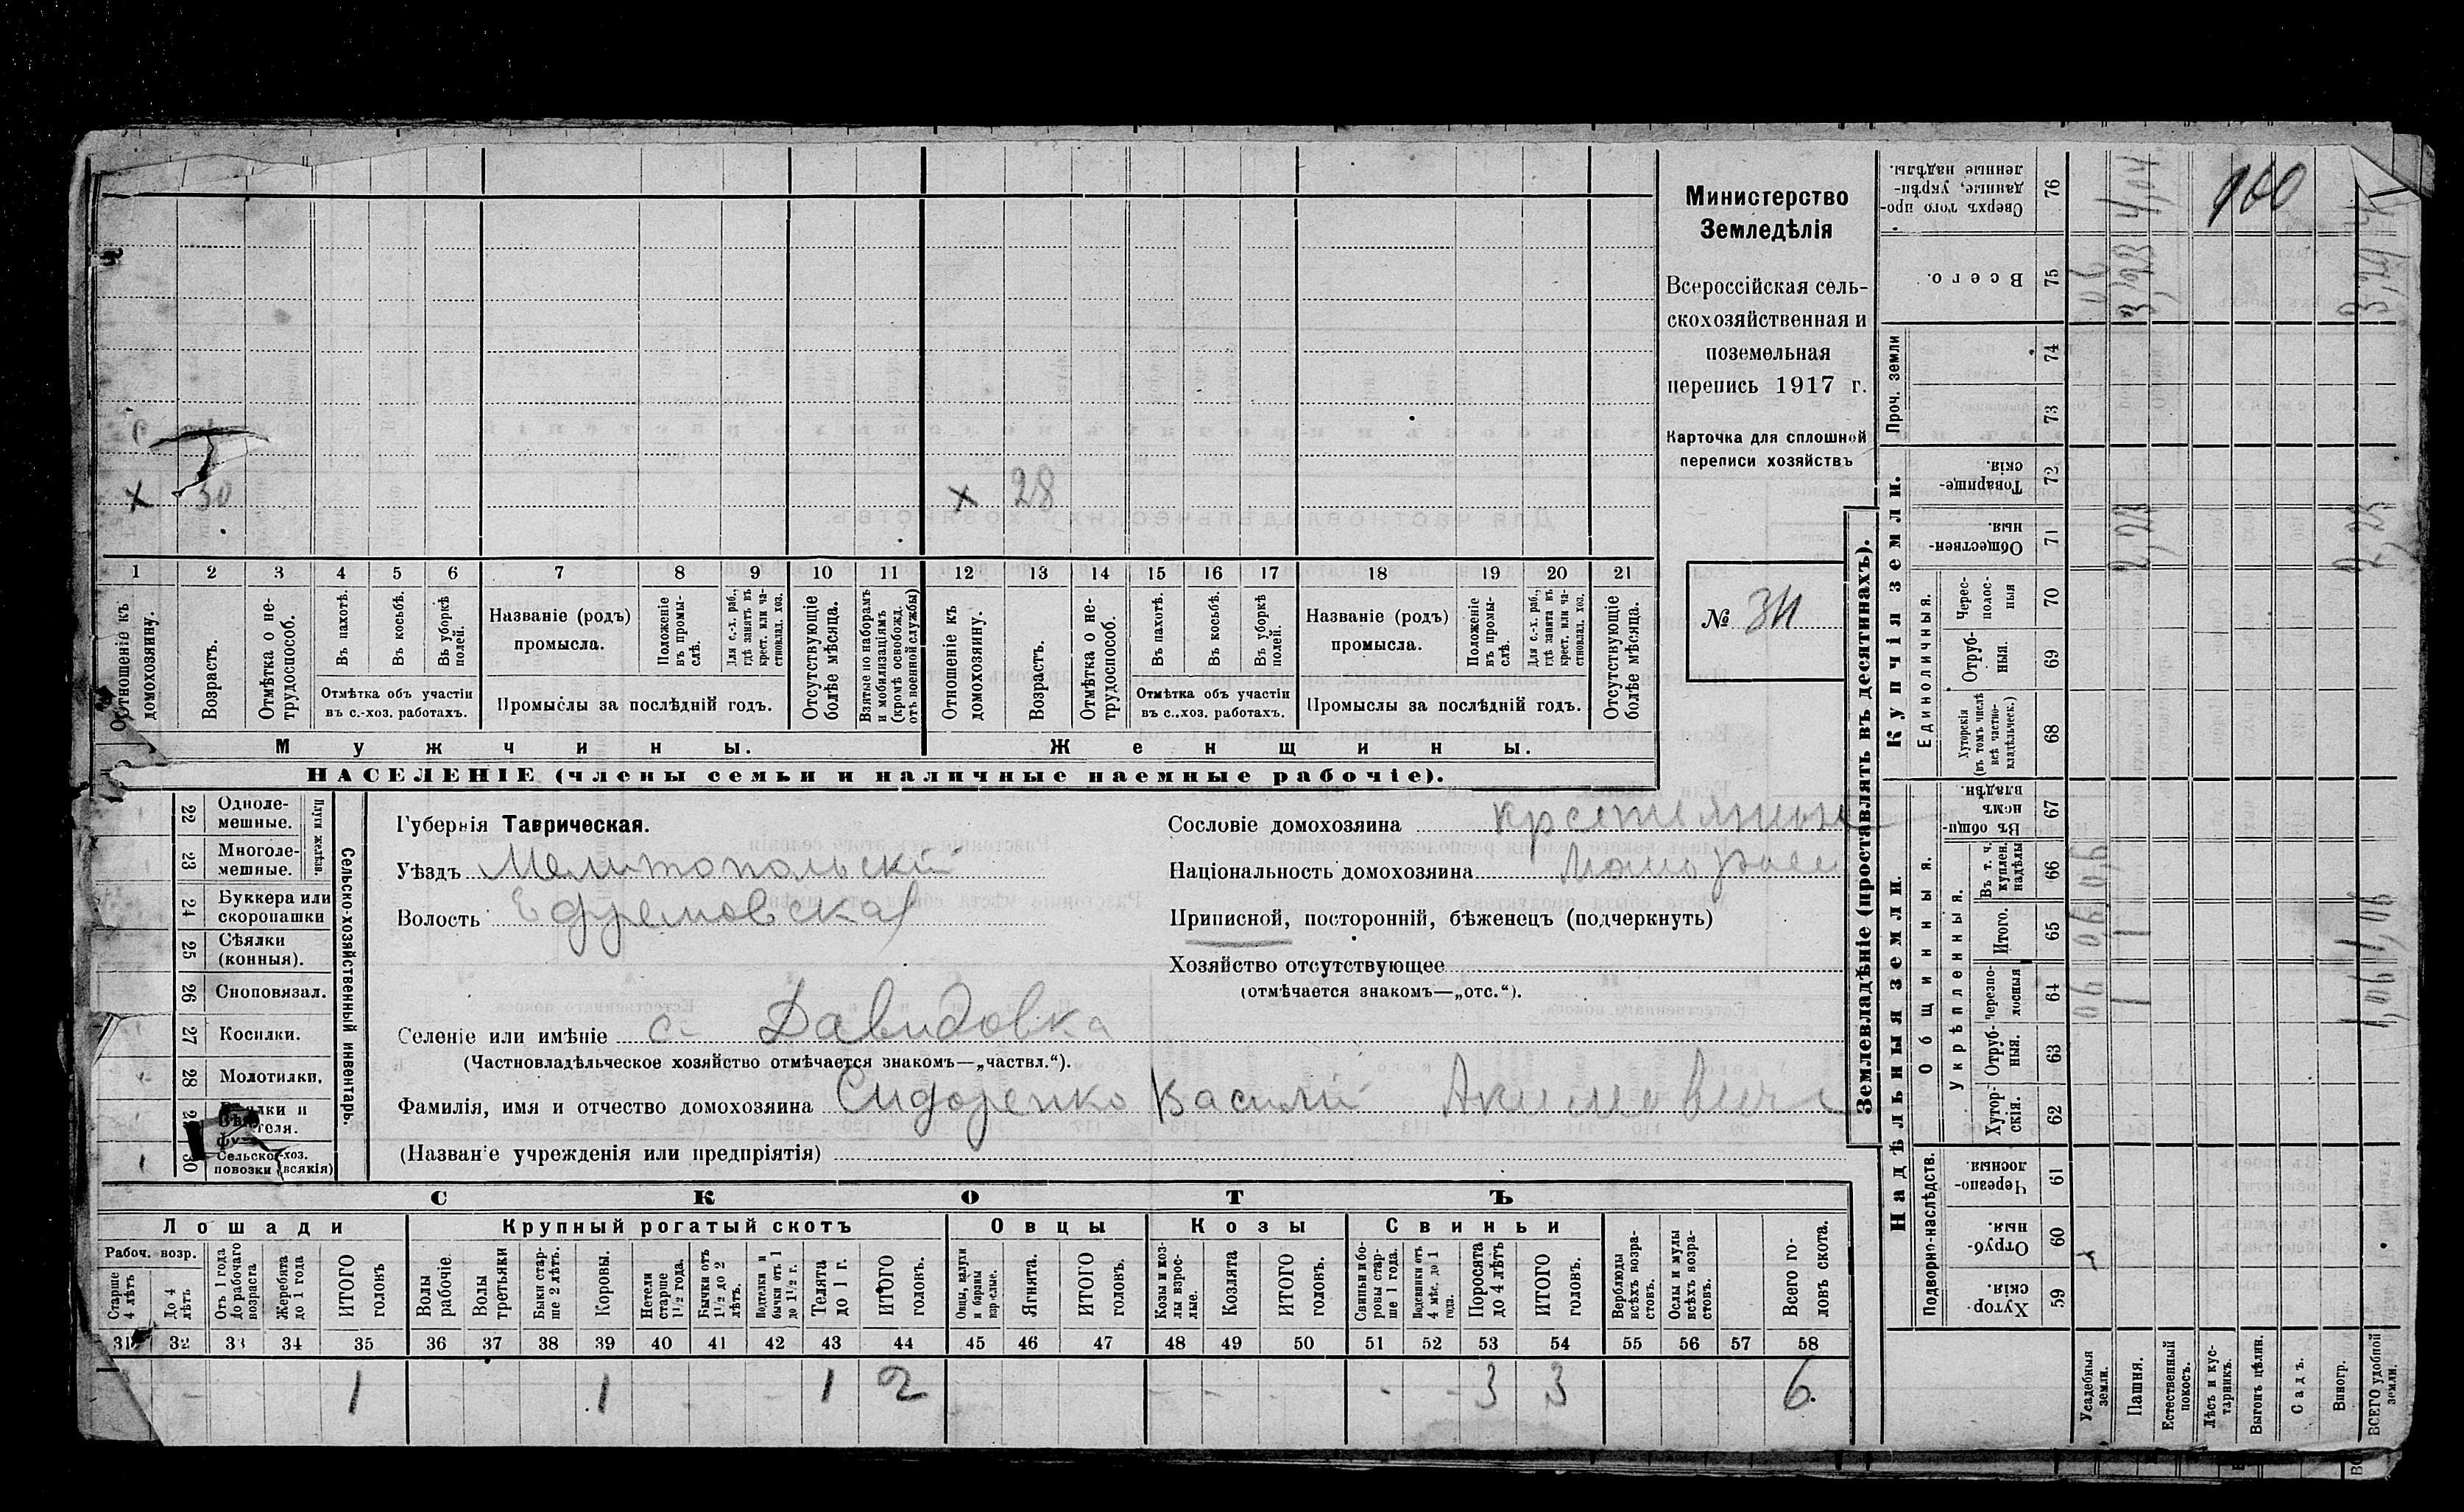 Министерство
Земледѣлія
Всероссійская сель-
скохозяйственная и
поземельная
перепись 1917 г.
Карточка для сплошной
переписи хозяйствъ
№
х 30 х 28
1 2 3 4 5 6 7 8 9 10 11 12 13 14 15 16 17 18 19 20 21
Отношеніе къ домохозяину.
Возрастъ.
Отмѣтка о не-трудоспособ.
Въ пахотѣ.
Въ косьбѣ.
Въ уборкѣ полей.
Отмѣтка объ участіи
въ с.-хоз. работахъ.
Названіе (родъ)
промысла.
Положеніе въ промы-слѣ.
Для с.-х. раб., гдѣ занятъ въ крест. или ча-стновлад. хоз.
Промыслы за послѣдній годъ.
Отсутствующіе болѣе мѣсяца.
Взятые по наборамъ и мобилизаціямъ (кромѣ освобожд. отъ военной службы)
Отношеніе къ домохозяину.
Возрастъ.
Отмѣтка о не-трудоспособ.
Въ пахотѣ.
Въ косьбѣ.
Въ уборкѣ полей.
Отмѣтка объ участіи
въ с.-хоз. работахъ.
Названіе (родъ)
промысла.
Положеніе въ промы-слѣ.
Для с.-х. раб., гдѣ занята въ крест. или ча-стновлад. хоз.
Промыслы за послѣдній годъ.
Отсутствующіе болѣе мѣсяца.
Мужчины. Женщины.
НАСЕЛЕНІЕ (члены семьи и наличные наемные рабочіе).
Сельско-хозяйственный инвентарь.
Плуги желѣз.
22 Одноле-мешные.
23 Многоле-мешные.
24 Буккера или скоропашки
25 Сѣялки (конныя).
26 Сноповязал.
27 Косилки.
28 Молотилки.
30 Сельско-хоз. повозки (всякія)
Губернія Таврическая.
Уѣздъ Мелитопольскій
Волость Ефремовская
Селеніе или имѣніе с. Давидовка
(Частновладѣльческое хозяйство отмѣчается знакомъ—„частвл.“).
Фамилія, имя и отчество домохозяина Сидоренко Василій Акимовичъ
(Названіе учрежденія или предпріятія)
Сословіе домохозяина крестьянинъ
Національность домохозяина
Приписной, посторонній, бѣженецъ (подчеркнуть)
Хозяйство отсутствующее
(отмѣчается знакомъ—„отс.“).
СКОТЪ
Лошади Крупный рогатый скотъ Овцы Козы Свиньи
Рабоч. возр.
Старше 4 лѣтъ
До 4 лѣтъ
Отъ 1 года до рабочаго возраста
Жеребята до 1 года
ИТОГО головъ
Волы рабочіе
Волы третьяки
Быки стар-ше 2 лѣтъ.
Коровы.
Нетели старше 1½ года.
Бычки отъ 1½ до 2 лѣтъ.
Подтелки и бычки отъ 1 до 1½ г.
Телята до 1 г.
ИТОГО головъ.
Овцы, валухи и бараны взрослые.
Ягнята.
ИТОГО головъ.
Козы и коз-лы взрос-лые.
Козлята
ИТОГО головъ.
Свиньи и бо-ровы стар-ше 1 года.
Подсвинки отъ 4 мѣс. до 1 года.
Поросята до 4 лѣтъ
ИТОГО головъ.
Верблюды всѣхъ возра-стовъ.
Ослы и мулы всѣхъ возра-стовъ.
Всего го-ловъ скота.
31 32 33 34 35 36 37 38 39 40 41 42 43 44 45 46 47 48 49 50 51 52 53 54 55 56 57 58
1 1 1 2 3 3 6
Землевладѣніе (проставлять въ десятинахъ).
Надѣльныя земли.
Подворно-наслѣдств.
Хутор-скія 59
Отруб-ныя. 60
Черезпо-лосныя. 61
Общинныя.
Укрѣпленныя.
Хутор-скія. 62
Отруб-ныя. 63
Черезпо-лосныя 64
Итого. 65
Въ т. ч. куплен. надѣлы 66
Въ общин-номъ владѣн. 67
Купчія земли.
Единоличныя.
Хуторскія (въ томъ числѣ всѣ частно-владѣльческ.) 68
Отруб-ныя. 69
Черес-полос-ныя 70
Обществен-ныя 71
Товарище-скія. 72
Проч. земли
73 74
Всего. 75
Сверхъ того про-данные, укрѣп-ленные надѣлы. 76
Усадебныя земли.
06 06 06
Пашня.
1 1 2,23
Естественный покосъ.
Лѣсъ и кус-тарникъ.
Выгонъ цѣлин.
Садъ.
Виногр.
ВСЕГО удобной земли.
1,06 1,06 2,23